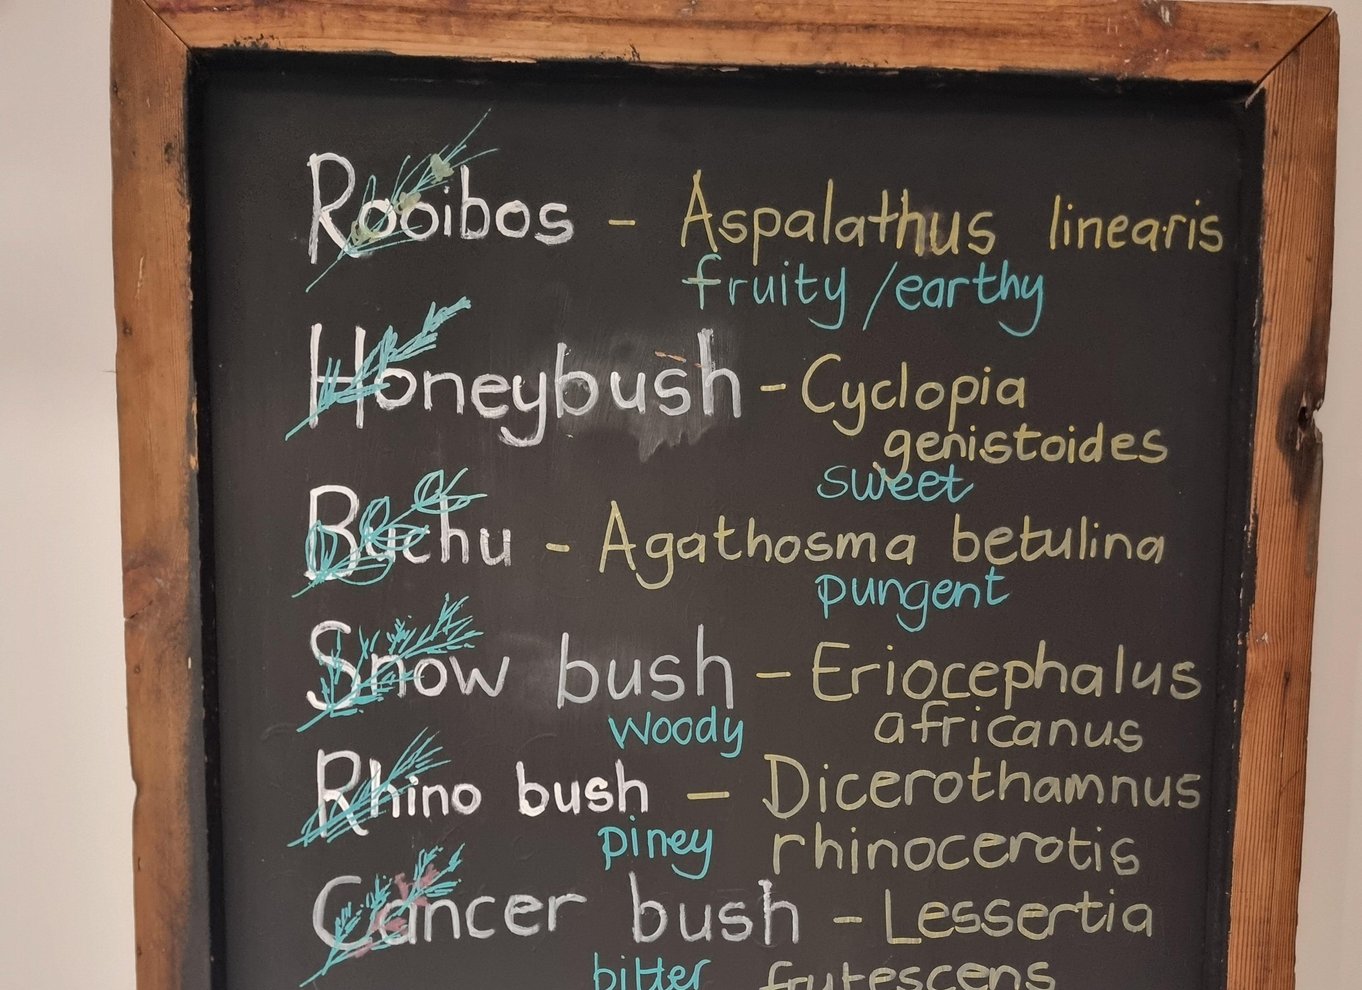 Rooibos - Aspalathus linearis
fruity / earthy
Honeybush - Cyclopia
genistoides
sweet
Buchu - Agathosma betulina
pungent
Snow bush - Eriocephalus
woody africanus
Rhino bush - Dicerothamnus
piney rhinocerotis
Cancer bush - Lessertia
bitter frutescens